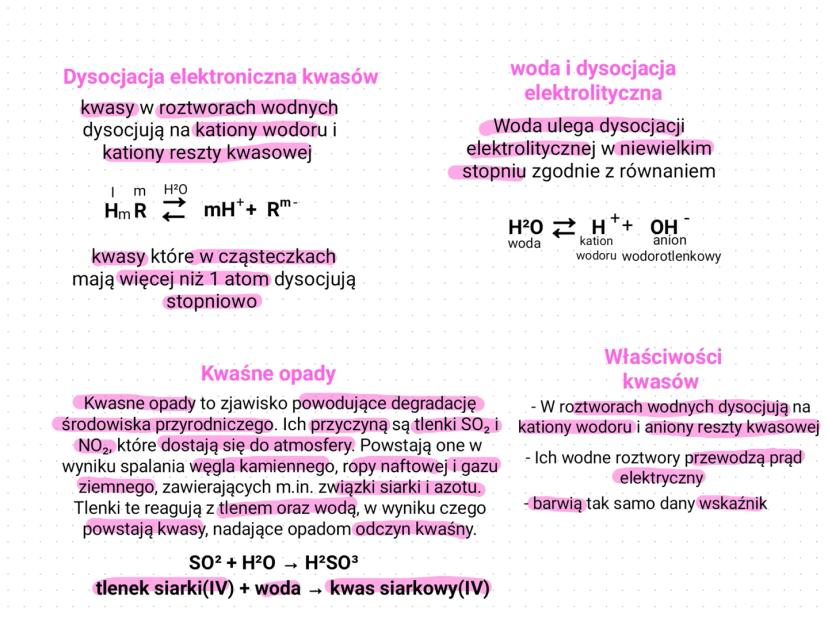 Dysocjacja elektroniczna kwasów
kwasy w roztworach wodnych
dysocjują na kationy wodoru i
kationy reszty kwasowej
I m H²O
HmR ⇄ mH⁺ + Rᵐ⁻
kwasy które w cząsteczkach
mają więcej niż 1 atom dysocjują
stopniowo
woda i dysocjacja
elektrolityczna
Woda ulega dysocjacji
elektrolitycznej w niewielkim
stopniu zgodnie z równaniem
H²O ⇄ H⁺ + OH⁻
woda kation anion
wodoru wodorotlenkowy
Kwaśne opady
Kwasne opady to zjawisko powodujące degradację
środowiska przyrodniczego. Ich przyczyną są tlenki SO₂ i
NO₂, które dostają się do atmosfery. Powstają one w
wyniku spalania węgla kamiennego, ropy naftowej i gazu
ziemnego, zawierających m.in. związki siarki i azotu.
Tlenki te reagują z tlenem oraz wodą, w wyniku czego
powstają kwasy, nadające opadom odczyn kwaśny.
SO² + H²O → H²SO³
tlenek siarki(IV) + woda → kwas siarkowy(IV)
Właściwości
kwasów
- W roztworach wodnych dysocjują na
kationy wodoru i aniony reszty kwasowej
- Ich wodne roztwory przewodzą prąd
elektryczny
- barwią tak samo dany wskaźnik